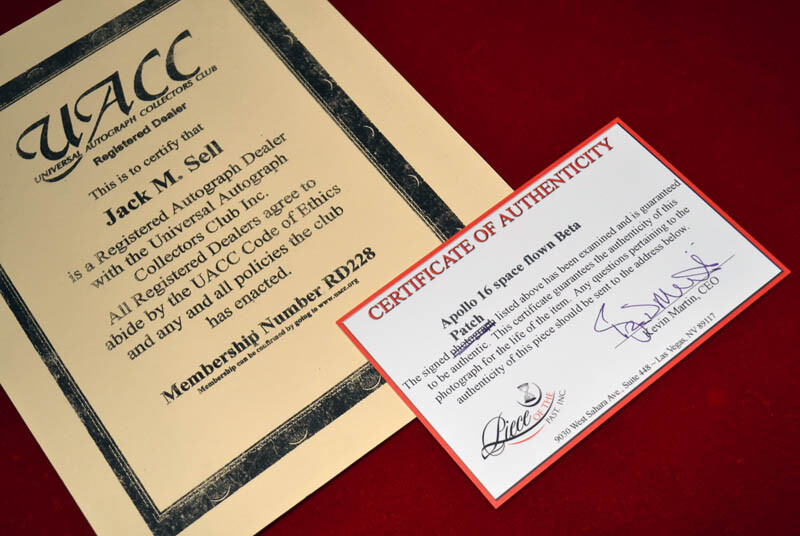 UACC
UNIVERSAL AUTOGRAPH COLLECTORS CLUB
Registered Dealer
This is to certify that
Jack M. Sell
is a Registered Autograph Dealer
with the Universal Autograph
Collectors Club Inc.
All Registered Dealers agree to
abide by the UACC Code of Ethics
and any and all policies the club
has enacted.
Membership Number RD228
Membership can be confirmed by going to www.uacc.org
CERTIFICATE OF AUTHENTICITY
Apollo 16 space flown Beta
Patch
The signed photograph listed above has been examined and is guaranteed
to be authentic. This certificate guarantees the authenticity of this
photograph for the life of the item. Any questions pertaining to the
authenticity of this piece should be sent to the address below.
Kevin Martin, CEO
Piece
OF THE
PAST INC.
9030 West Sahara Ave., Suite 448 ~ Las Vegas, NV 89117